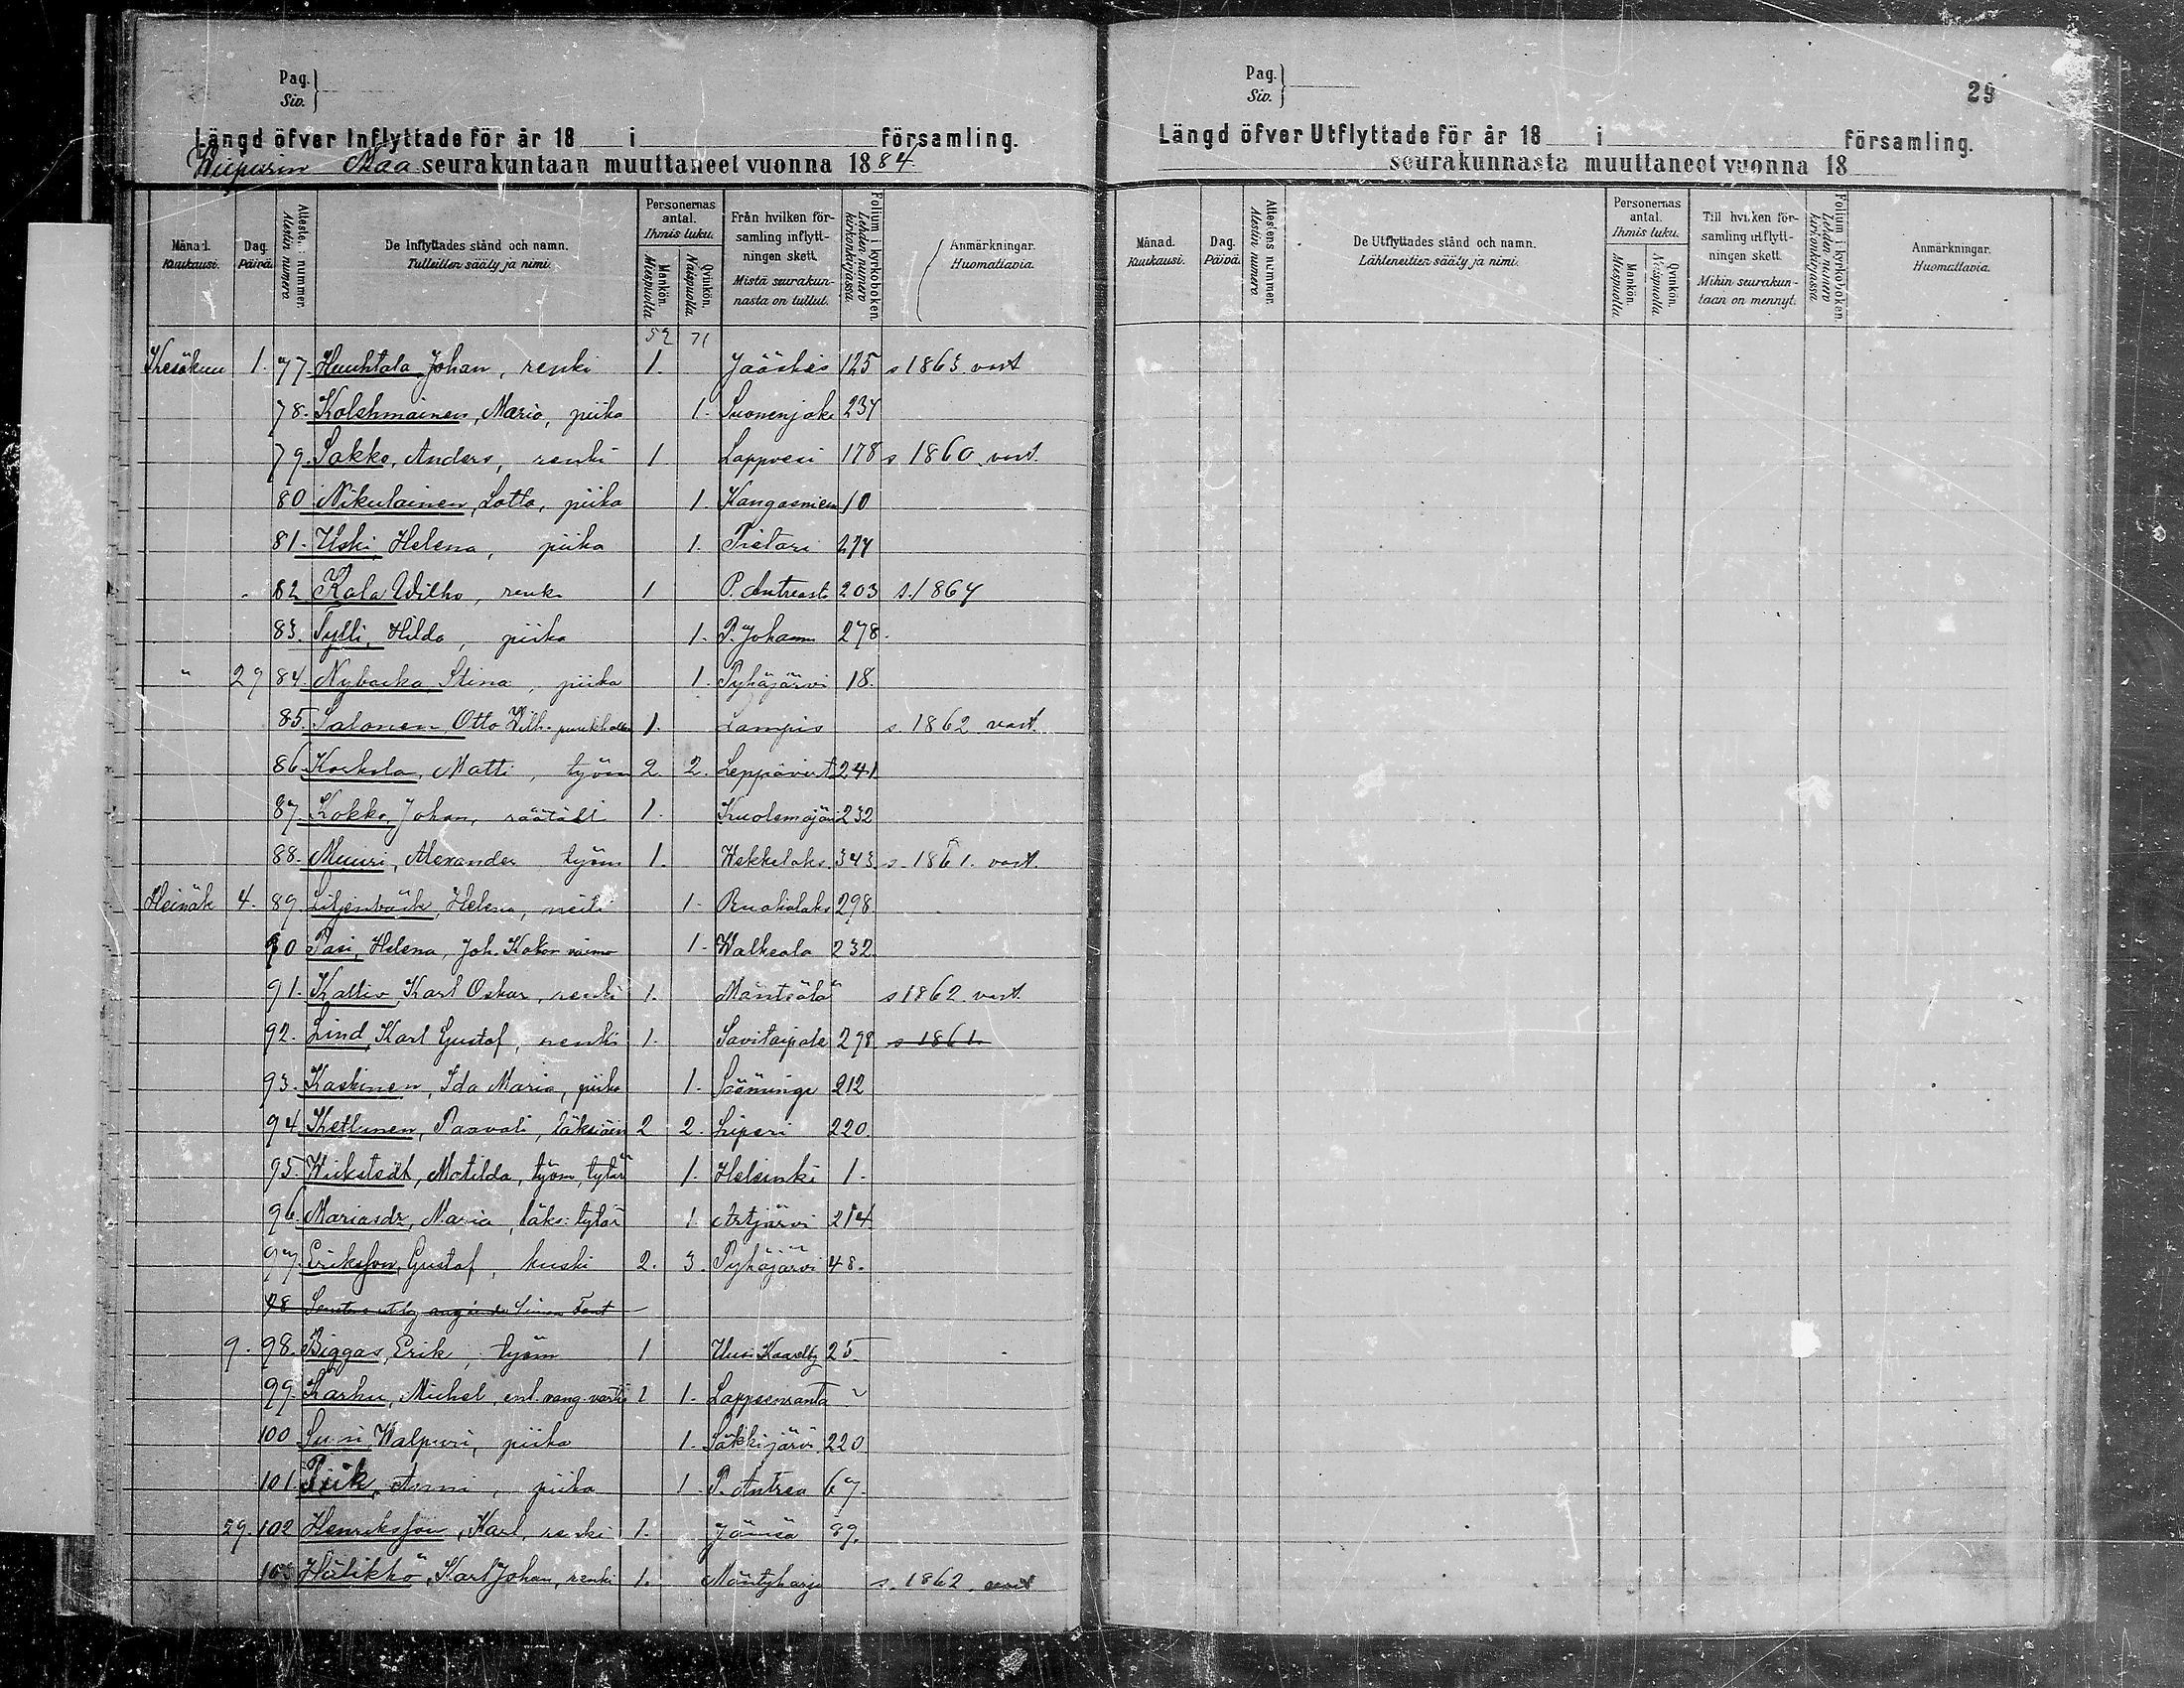 Pag.
Siv.
Längd öfver Inflyttade för år 18 i församling.
Wiipurin Maa seurakuntaan muuttaneet vuonna 1884.
Månad. Kuukausi.
Dag. Päivä.
Attestens nummer. Alestin numero
De Inflyttades stånd och namn. Tulleitten sääty ja nimi.
Personernas antal. Ihmis luku.
Mankön. Miespuolta
Qvinkön. Naispuolta
Från hvilken församling inflyttningen skett. Mistä seurakunnasta on tullut.
Folium i kyrkoboken. Lehden numero kirkonkirjassa.
Anmärkningar. Huomattavia.
52 71
Kesäkuu 1. 77. Huuhtala, Johan, renki 1. Jääskis 125 s 1863. vast
78. Kolehmainen, Maria, piika 1. Suonenjoki 237
79. Sakko, Anders, renki 1 Lappvesi 178 s 1860. vast.
80 Nikulainen, Lotta, piika 1. Kangasniem 10
81. Uski, Helena, piika 1. Pietari 277
82 Kala Wilho, renk. 1 P. Antreast. 203 s. 1864
83. Sylli, Hilda, piika 1. P. Johann 278.
" 29 84. Nybacka, Stina, piika 1. Pyhäjärvi 18.
85. Salonen, Otto Wilh. 1. Lampis s. 1862 vast.
86. Koskela, Matti, työm 2. 2. Leppävirt 241
87. Kokko, Johan, räätäli 1. Kuolemajär 232
88. Muuri, Alexander työm 1. Wekkelaks. 343. s. 1861. vast.
Heinäk 4. 89. Liljenbäck, Helena, neiti 1. Ruokolaks 298.
90 Pasi, Helena, Joh. Kokon vaimo 1. Walkeala 232.
91. Kallio, Karl Oskar, renki 1. Mäntsälä s 1862. vast.
92. Lind, Karl Gustaf, renki 1. Savitaipale 298. s 1861.
93. Kaskinen, Ida Maria, piika 1. Sääminge 212
94. Kettunen, Paavali, läksiäin 2 2. Liperi 220.
95. Wickstedt, Matilda, työm, tytär 1. Helsinki 1.
96. Mariasdr, Maria, läks: tytär 1. Artjärvi 214.
97. Eriksson, Gustaf, kuski 2. 3. Pyhäjärvi 48.
98
9. 98. Biggas, Erik, työm 1 Uusi Kaarleby 25.
99. Karhu, Michel, ent. vang. vartia 1. Lappeenranta
100 Susi, Walpuri, piika 1. Säkkijärvi 220
101. Piik, Anni, piika 1. P. Antrea 67.
29. 102 Henriksson, Karl, renki 1. Jämsä 89.
103 Hülikkö, Karl Johan, renki 1. Mäntyharju s. 1862. vast
Pag.
Siv.
29
Längd öfver Utflyttade för år 18 i församling.
seurakunnasta muuttaneet vuonna 18
Månad. Kuukausi.
Dag. Päivä.
Attestens nummer. Alestin numero
De Utflyttades stånd och namn. Lähteneitten sääty ja nimi.
Personernas antal. Ihmis luku.
Mankön. Miespuolta
Qvinkön. Naispuolta
Till hvilken församling utflyttningen skett. Mihin seurakuntaan on mennyt.
Folium i kyrkoboken. Lehden numero kirkonkirjassa.
Anmärkningar. Huomattavia.